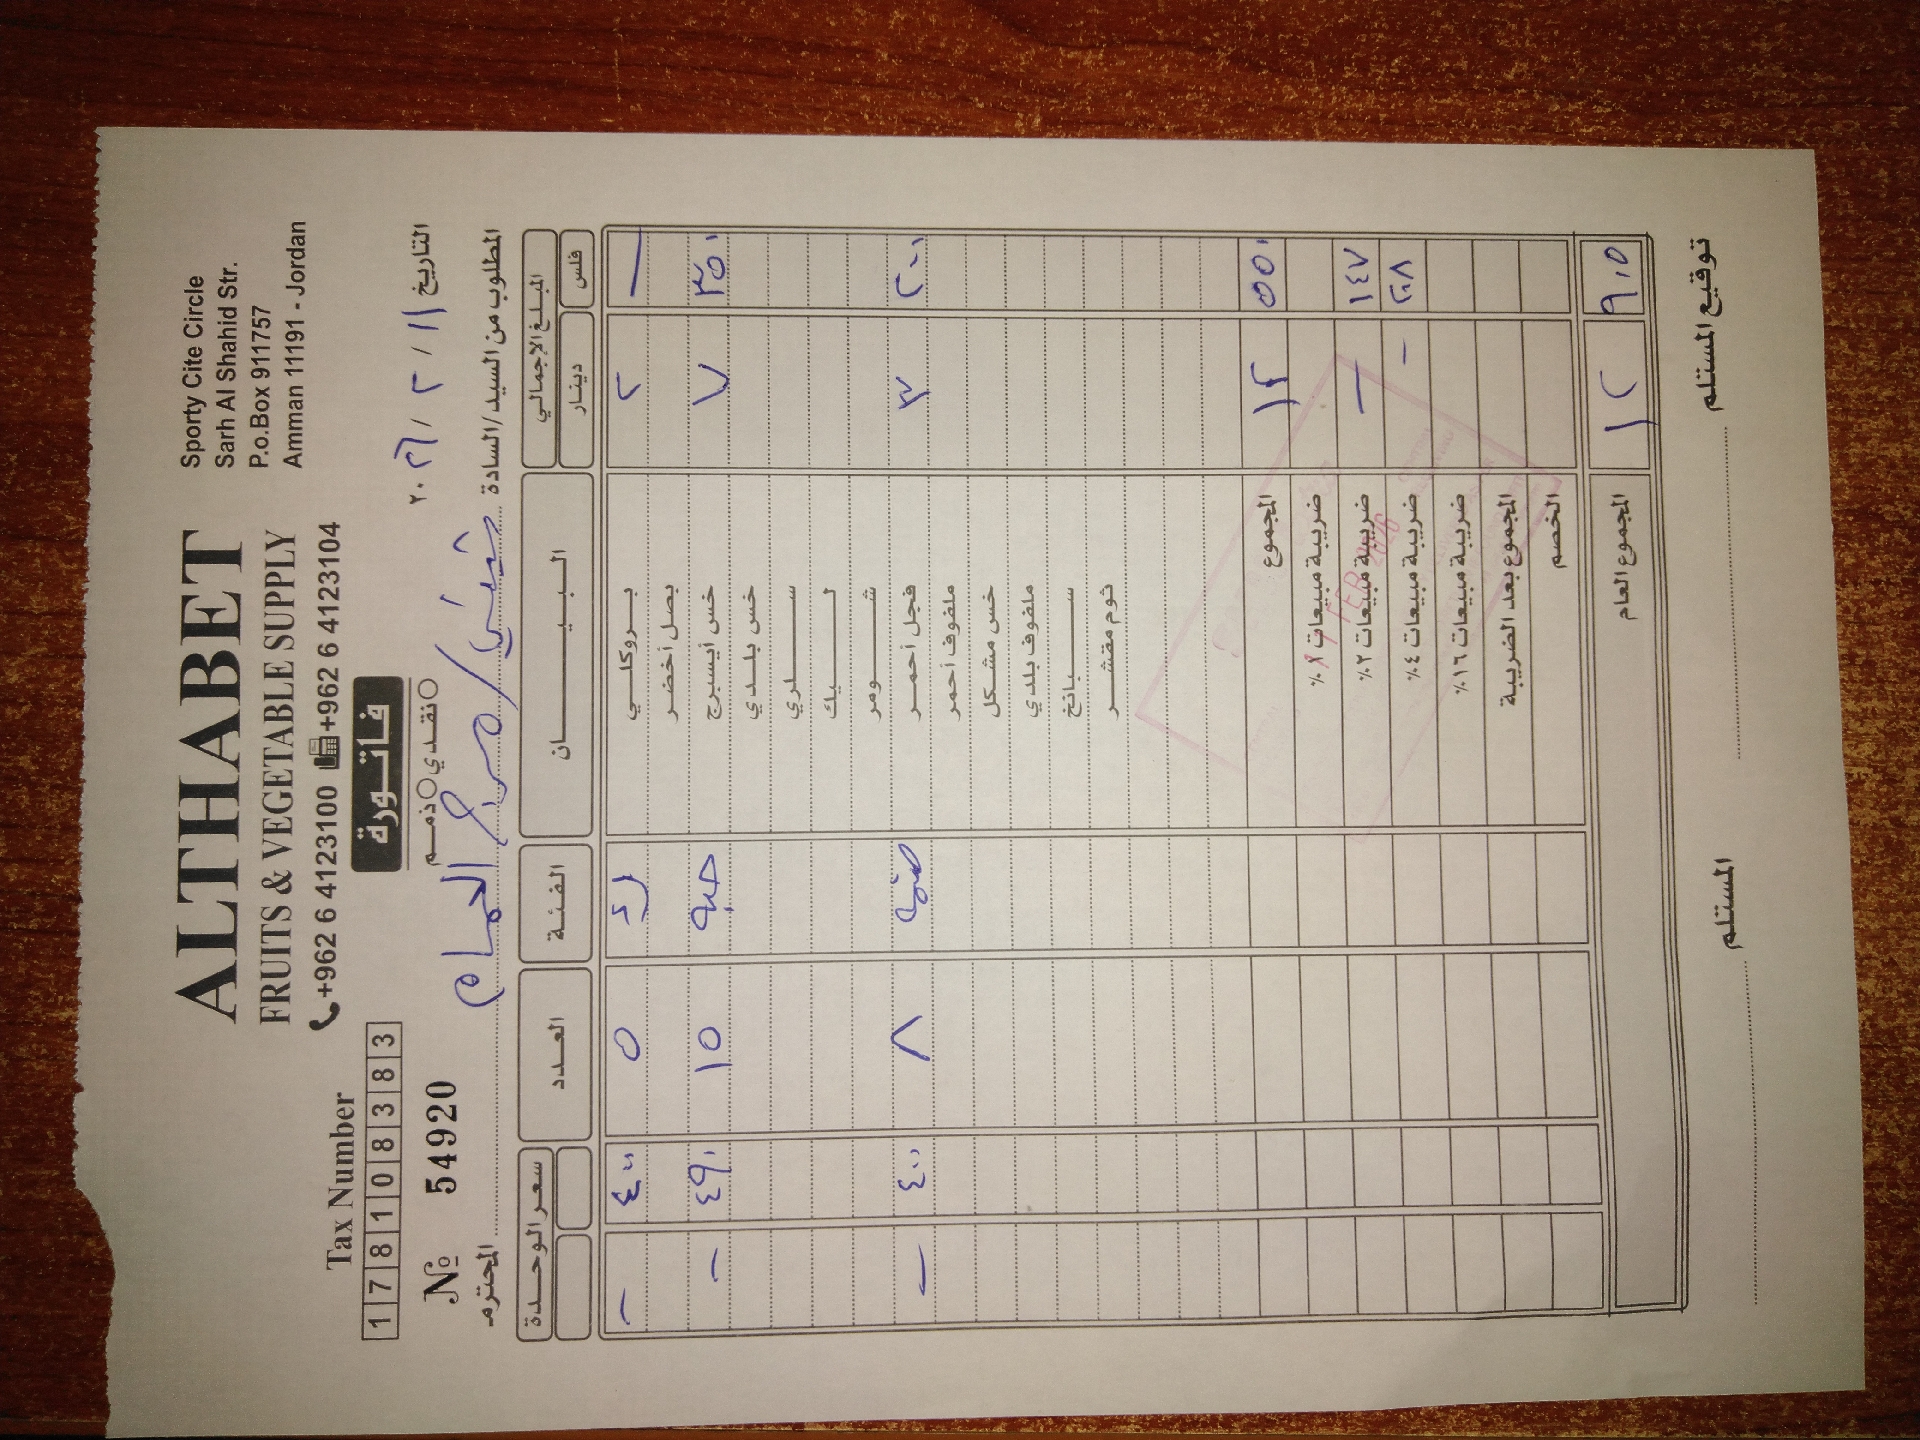 ALTHABET
FRUITS & VEGETABLE SUPPLY
+962 6 4123100 +962 6 4123104
Sporty Cite Circle
Sarh Al Shahid Str.
P.o.Box 911757
Amman 11191 - Jordan
Tax Number
1 7 8 1 0 8 3 8 3
فاتورة
نقدي ذمم
№ 54920
التاريخ ١١ / ٢ / ٢٠٢٦
المطلوب من السيد/السادة / العمام المحترم
المبلغ الإجمالي البيان الفئة العدد سعر الوحدة
فلس دينار
— ٢ بروكلي ٥ ٤٠٠ -
٣٥٠ ٧ بصل أخضر
خس أيسبرج حبه ١٥ ٤٩٠ -
خس بلدي
سلري
ليك
شومر
٢٠٠ ٣ فجل أحمر ضمه ٨ ٤٠٠ —
ملفوف أحمر
خس مشكل
ملفوف بلدي
سبانخ
ثوم مقشر
٥٥٠ ١٢ المجموع
ضريبة مبيعات
١٤٧ — ضريبة مبيعات ٢٪
٢٠٨ - ضريبة مبيعات ٤٪
ضريبة مبيعات ١٦٪
المجموع بعد الضريبة
الخصم
٩٠٥ ١٢ المجموع العام
FEB 2026
توقيع المستلم
المستلم